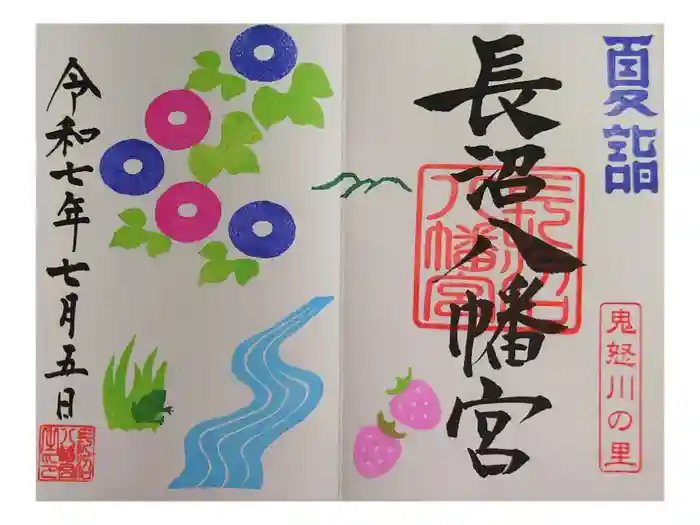 夏詣
長沼八幡宮
長沼八幡宮
鬼怒川の里
令和七年七月五日